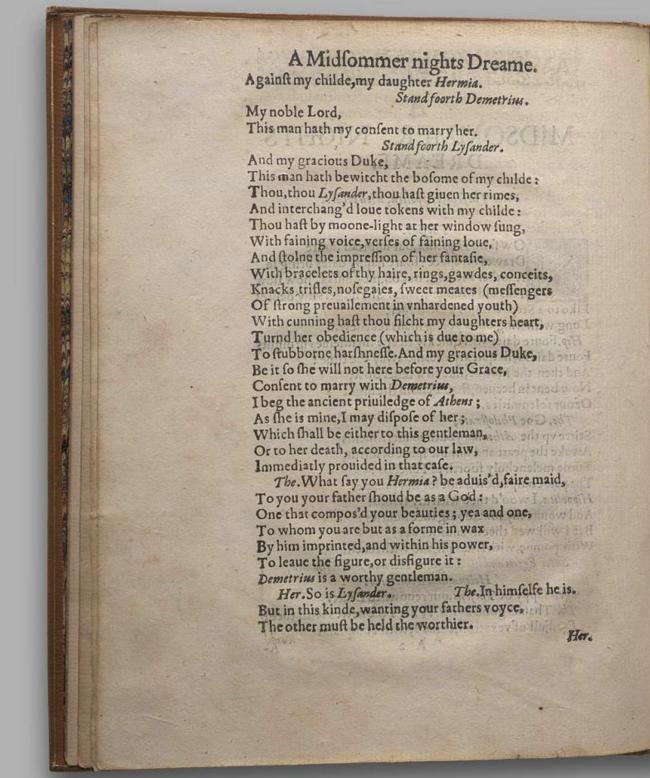 A Midſommer nights Dreame.
Againſt my childe,my daughter Hermia.
Stand foorth Demetrius.
My noble Lord,
This man hath my conſent to marry her.
Stand foorth Lyſander.
And my gracious Duke,
This man hath bewitcht the boſome of my childe:
Thou,thou Lyſander,thou haſt giuen her rimes,
And interchang'd loue tokens with my childe:
Thou haſt by moone-light at her window ſung,
With faining voice,verſes of faining loue,
And ſtolne the impreſſion of her fantaſie,
With bracelets of thy haire, rings,gawdes, conceits,
Knacks,trifles,noſegaies, ſweet meates (meſſengers
Of ſtrong preuailement in vnhardened youth)
With cunning haſt thou filcht my daughters heart,
Turnd her obedience (which is due to me)
To ſtubborne harſhneſſe.And my gracious Duke,
Be it ſo ſhe will not here before your Grace,
Conſent to marry with Demetrius,
I beg the ancient priuiledge of Athens;
As ſhe is mine,I may diſpoſe of her;
Which ſhall be either to this gentleman,
Or to her death, according to our law,
Immediatly prouided in that caſe.
The.What ſay you Hermia? be aduis'd,faire maid,
To you your father ſhoud be as a God:
One that compos'd your beauties; yea and one,
To whom you are but as a forme in wax
By him imprinted,and within his power,
To leaue the figure,or diſfigure it:
Demetrius is a worthy gentleman.
Her.So is Lyſander. The.In himſelfe he is.
But in this kinde,wanting your fathers voyce,
The other muſt be held the worthier.
Her.